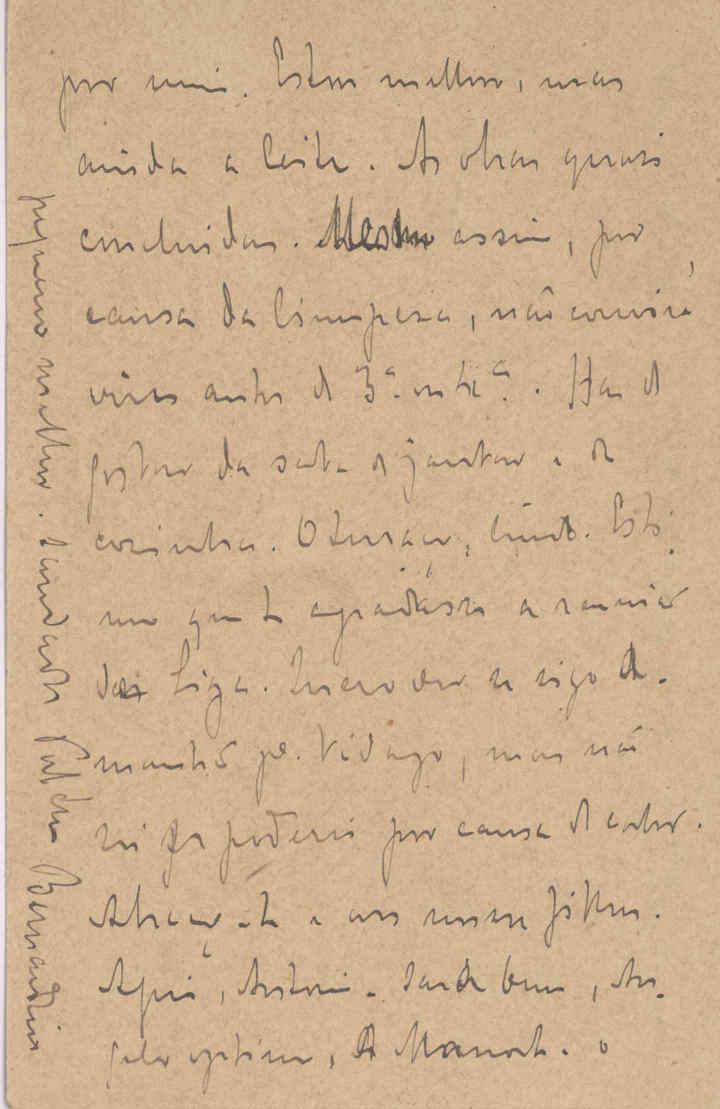 por mim. Estou melhor, mas
ainda a leite. As obras quasi
concluidas. Mesmo assim, por
causa da limpeza, não convirá
vires antes de 3ª ou 4ª. Has de
gostar da sala de jantar e da
cozinha. O terraço, lindo. Esti-
mo que te agradasse a reunião
da Liga. Quero ver se sigo
manhã pª. Vidago, mas não
sei se poderei por causa do calor.
Abraço-te e aos nossos filhos.
Aqui, Antonio. Saude bem, An-
gelo optimo, A Manoel. o
pequeno melhor. Saudades Pae Bernardino